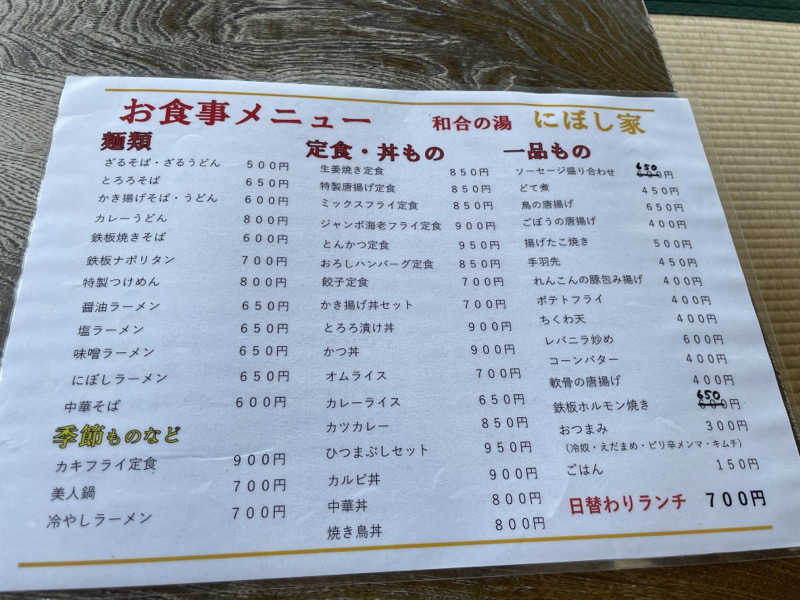 お食事メニュー 和合の湯 にぼし家
麺類
ざるそば・ざるうどん 500円
とろろそば 650円
かき揚げそば・うどん 600円
カレーうどん 800円
鉄板焼きそば 600円
鉄板ナポリタン 700円
特製つけめん 800円
醤油ラーメン 650円
塩ラーメン 650円
味噌ラーメン 650円
にぼしラーメン 650円
中華そば 600円
季節ものなど
カキフライ定食 900円
美人鍋 700円
冷やしラーメン 700円
定食・丼もの
生姜焼き定食 850円
特製唐揚げ定食 850円
ミックスフライ定食 850円
ジャンボ海老フライ定食 900円
とんかつ定食 950円
おろしハンバーグ定食 850円
餃子定食 700円
かき揚げ丼セット 700円
とろろ漬け丼 900円
かつ丼 900円
オムライス 700円
カレーライス 650円
カツカレー 850円
ひつまぶしセット 950円
カルビ丼 900円
中華丼 800円
焼き鳥丼 800円
一品もの
ソーセージ盛り合わせ 650 600円
どて煮 450円
鳥の唐揚げ 650円
ごぼうの唐揚げ 400円
揚げたこ焼き 500円
手羽先 450円
れんこんの豚包み揚げ 400円
ポテトフライ 400円
ちくわ天 400円
レバニラ炒め 600円
コーンバター 400円
軟骨の唐揚げ 400円
鉄板ホルモン焼き 650 600円
おつまみ 300円
(冷奴・えだまめ・ピリ辛メンマ・キムチ)
ごはん 150円
日替わりランチ 700円